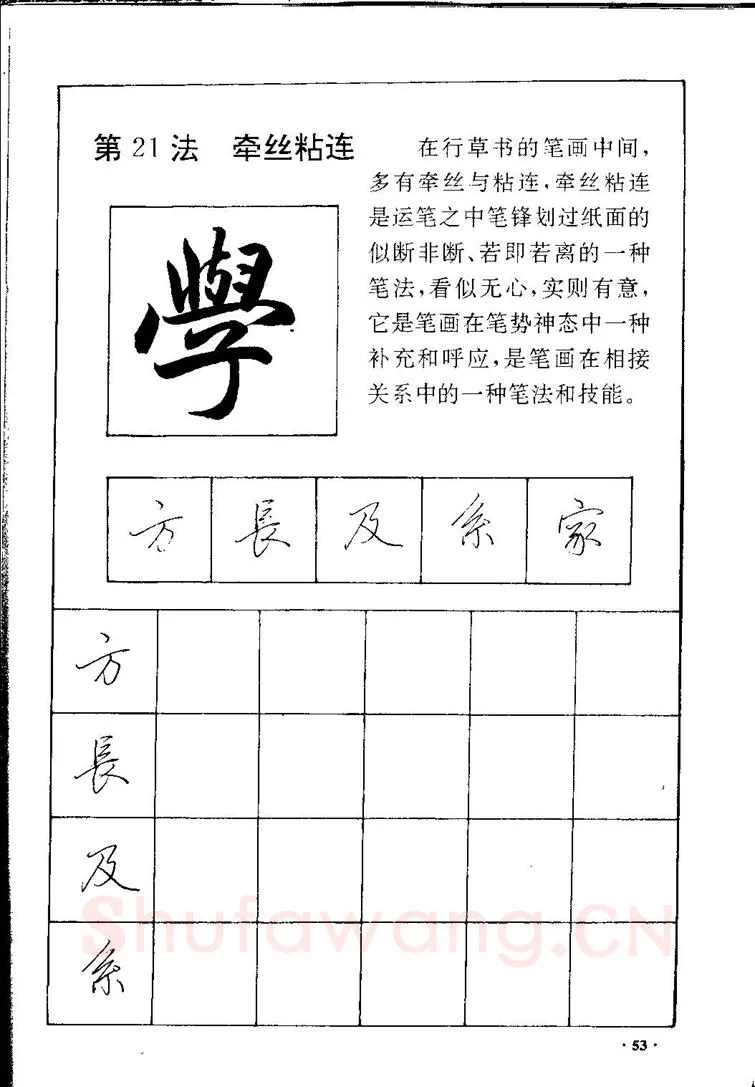 第21法 牵丝粘连
在行草书的笔画中间，
多有牵丝与粘连，牵丝粘连
是运笔之中笔锋划过纸面的
似断非断、若即若离的一种
笔法，看似无心，实则有意，
它是笔画在笔势神态中一种
补充和呼应，是笔画在相接
关系中的一种笔法和技能。
學
方 長 及 系 家
方
長
及
系
Shufawang.CN
·53·